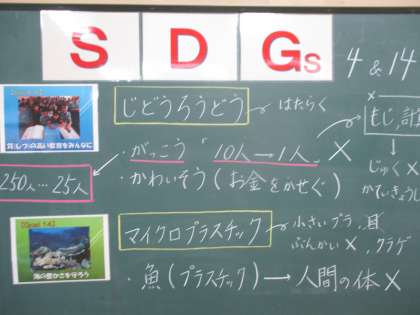 SDGs 4 & 14
[Goal 4]
質(しつ)の高い教育をみんなに
じどうろうどう はたらく
もじ,計
・がっこう "10人→1人" ×
じゅく×
かていきょうし
250人…25人
・かわいそう(お金をかせぐ)
[Goal 14]
海の豊かさを守ろう
マイクロプラスチック 小さいプラ,耳
ぶんかい×,クラゲ
・魚(プラスチック)→人間の体×